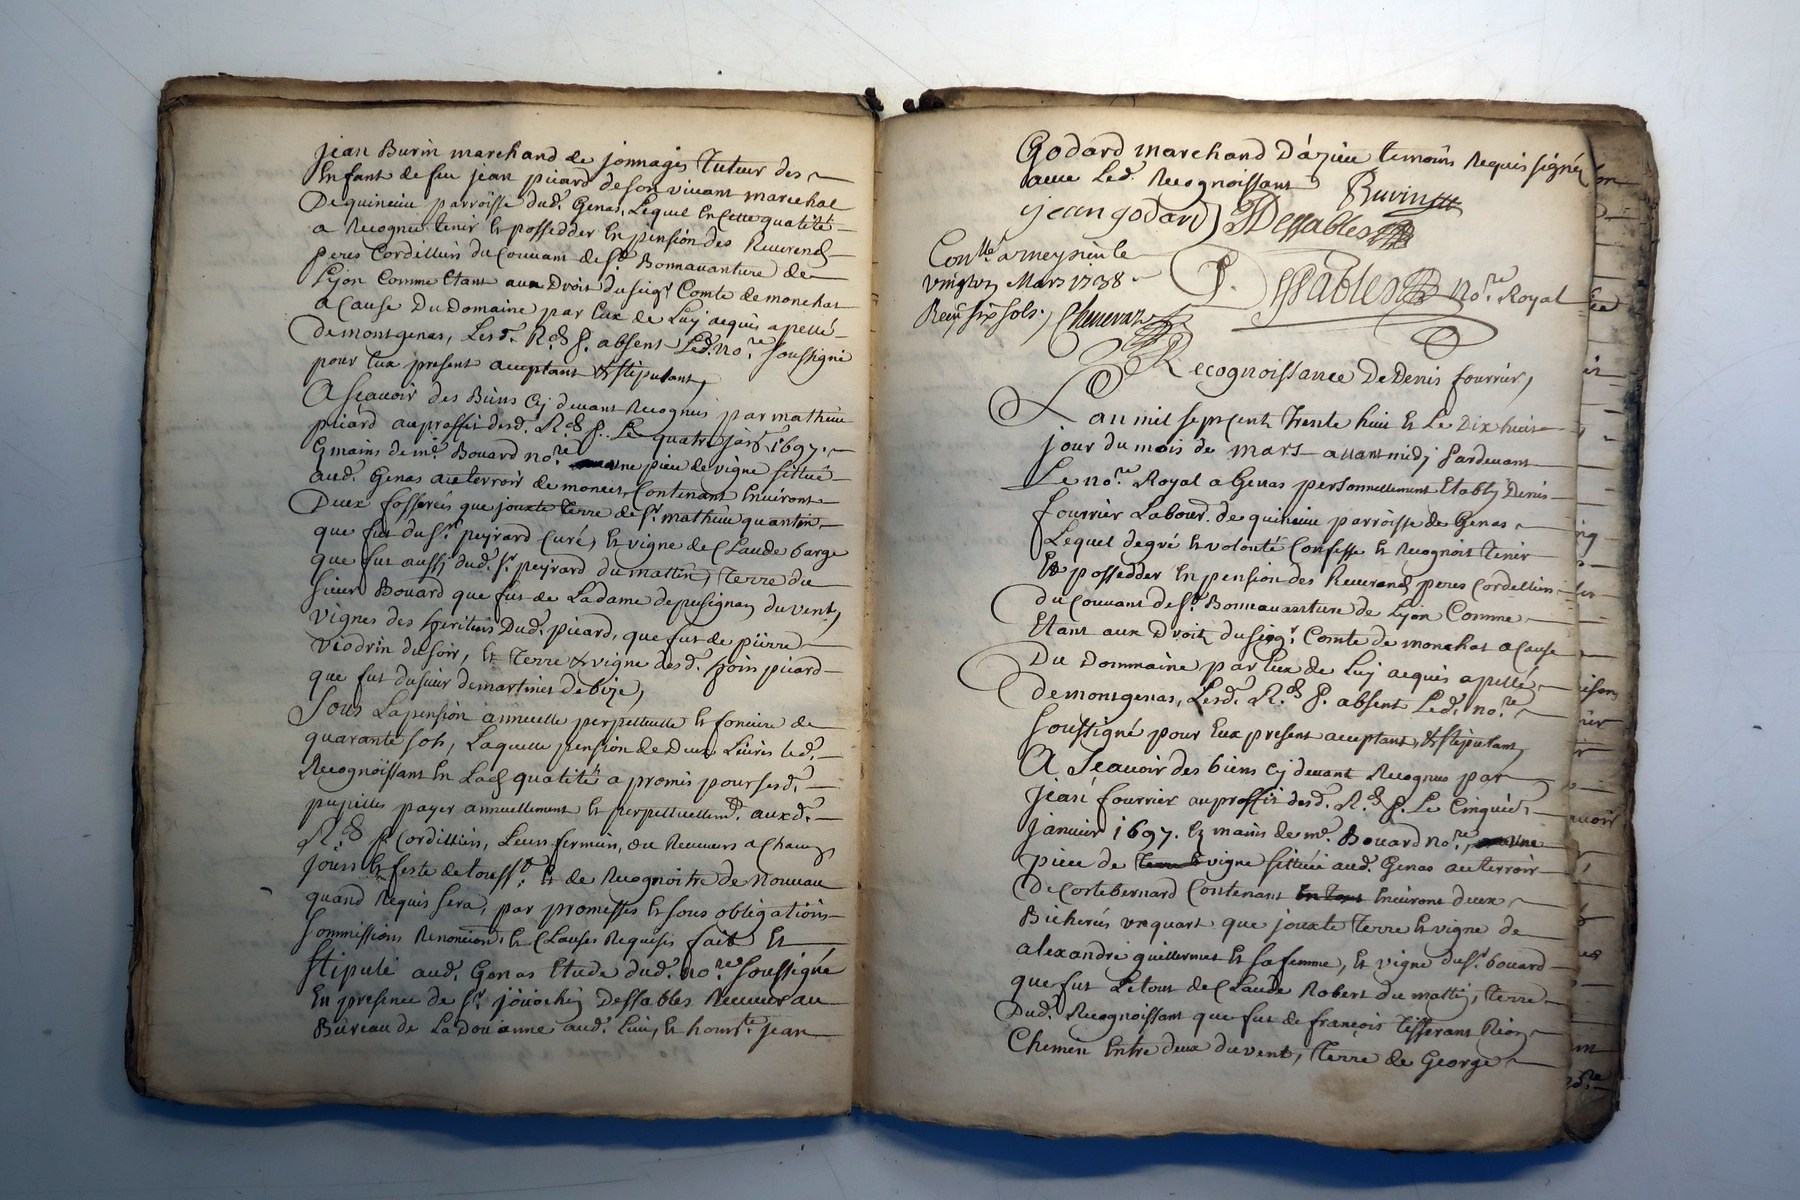 jean Burin marchand de jonnages tuteur des
Enfant de feu jean picard de son vivant marechal
De quincieu parroisse dud. Genas, Lequel En cette qualité
a Recognu tenir Et possedder En pension des Reverend
peres Cordelliers du Couvant de St. Bonnavanture de
Lyon Comme Etant aux Droit du seigr. Comte de monchat
a Cause Du Domaine par Eux de Luy acquis apellé
De montgenas, Lesd. Rds. P. absent Led. nore. soussigné
pour Eux present acceptant & stipulant,
A sçavoir des Biens Cy devant Recognus par mathieu
picard au proffit desd. Rds. P. Le quatre janv. 1697.
Es mains de me. Bouard nore. une piece de vigne sittué
aud. Genas au terroir de moneer, Contenant Environt
Deux fosserés que jouxte terre de sr. mathieu quantin
que fut du sr. peyrard Curé, Et vigne de Claude barge
que fut aussi dud. sr. peyrard du mattin, terre du
sieur Bouard que fut de La dame de pusignan du vent,
vignes des heritiers Dud. picard, que fut de pierre
viodrin du soir, Et terre & vigne desd. hoirs picard
que fut du sieur de martinet de bize,
Sous La pension annuelle perpettuelle Et fonciere de
quarante sols, Laquelle pension de Deux Livres led.
Recognoissant En Lad. qualité a promis pour sesd.
pupilles payer annuellement Et perpettuellemt. auxd.
Rds. P. Cordilliers, Leurs fermiers, ou Receveurs a Chacun
jours Et feste de toussts. Et de Recognoitre de Nouveau
quand Requis sera, par promesses Et sous obligations
sommissions Renoncions Et Clauses Requises fait Et
stipulé aud. Genas Etude dud. nore. soussigné
En presence de sr. jouachin Dessables Receveur au
Bureau de La Doüanne aud. Lieu, Et honnte. jean
Godard marchand D'azieu temoins Requis signés
avec Led. Recognoissant Buvin
jean godard Dessables
Conllé a meysieu le
vingt un Mars 1738
Receu six sols. Chenevaz
P. Dessables nore. Royal
Recognoissance De Denis fourrier,
L'an mil sept Cent Trente huit Et Le Dix huit
jour du mois de mars avant midy Pardevant
Le nore. Royal a Genas personnellement Etably Denis
fourrier Labourr. de quincieu parroisse de Genas
Lequel de gré Et volonté Confesse Et Recognoit tenir
Et possedder En pension des Reverend peres Cordelliers
du Couvant de St. Bonnavanture de Lyon Comme
Etant aux Droit du seigr. Comte de monchat a Cause
Du Dommaine par Eux de Luy acquis apellé
De montgenas, Lesd. Rds. P. absent Led. nore.
soussigné pour Eux present acceptant, & stipulant,
A sçavoir des biens Cy devant Recognus par
jean fourrier au proffit desd. Rds. P. Le Cinquie.
janvier 1697. Es mains de me. Bouard nore. une
piece de terre & vigne sittuée aud. Genas au terroir
De Cortebernard Contenant En tout Environt deux
Bicherés un quart que jouxte terre Et vigne de
alexandre guillermet Et sa femme, Et vigne du sr. bouard
que fut Le tout de Claude Robert du mattin, terre
Dud. Recognoissant que fut de françois tisserant Rion
Chemin Entre deux du vent, terre de George